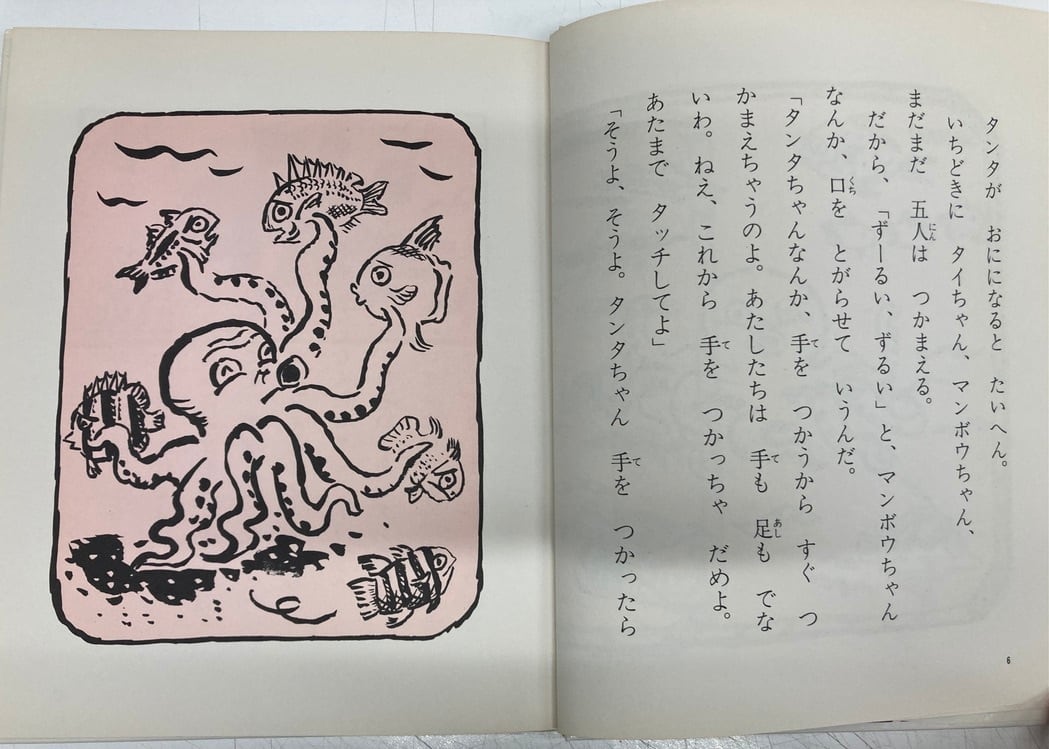 タンタが　おにになると　たいへん。
いちどきに　タイちゃん、マンボウちゃん、
まだまだ　五人は　つかまえる。
だから、「ずーるい、ずるい」と、マンボウちゃん
なんか、口を　とがらせて　いうんだ。
「タンタちゃんなんか、手を　つかうから　すぐ　つ
かまえちゃうのよ。あたしたちは　手も　足も　でな
いわ。ねえ、これから　手を　つかっちゃ　だめよ。
あたまで　タッチしてよ」
「そうよ、そうよ。タンタちゃん　手を　つかったら
6